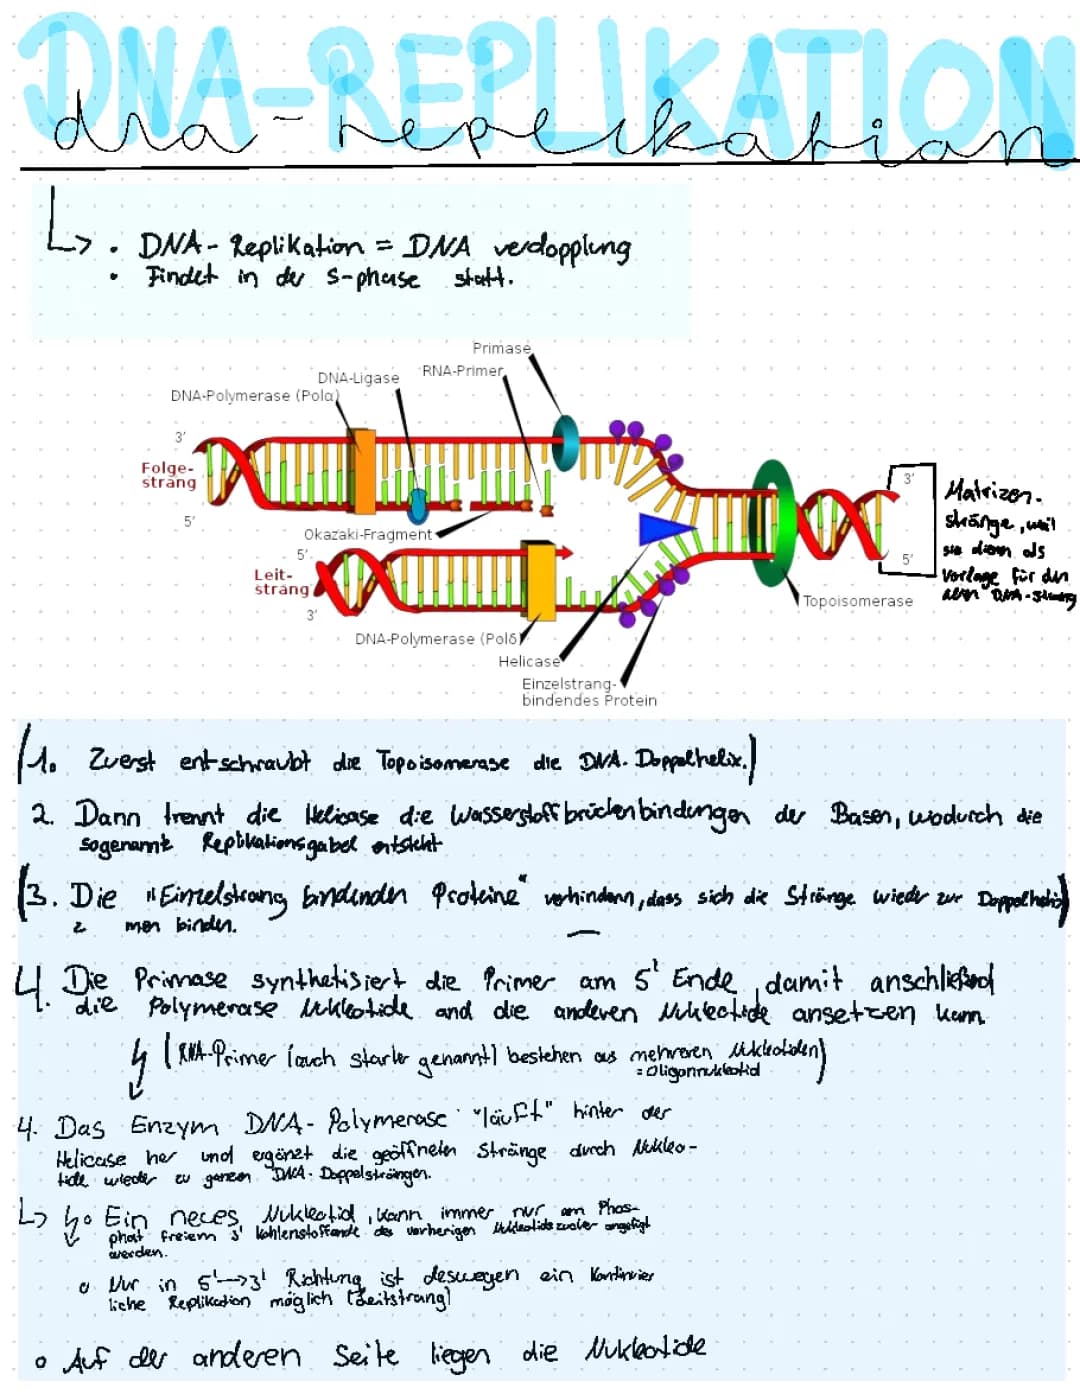 DNA-REPLIKATION
dna-replikation
↳ • DNA-Replikation = DNA verdopplung
• Findet in der S-phase statt.
Primase
RNA-Primer
DNA-Ligase
DNA-Polymerase (Polα)
3'
Folge-
strang
5'
Okazaki-Fragment
5'
Leit-
strang
3'
DNA-Polymerase (Polδ)
Helicase
Einzelstrang-
bindendes Protein
Topoisomerase
3'
5'
Matrizen-
stränge, weil
sie dienen als
Vorlage für den
DNA-Strang
(1. Zuerst entschraubt die Topoisomerase die DNA-Doppelhelix.)
2. Dann trennt die Helicase die Wasserstoffbrückenbindungen der Basen, wodurch die
sogenannte Replikationsgabel entsteht
(3. Die "Einzelstrang bindenden Proteine" verhindern, dass sich die Stränge wieder zur Doppelhelix)
men binden.
4. Die Primase synthetisiert die Primer am 5' Ende, damit anschließend
die Polymerase Nukleotide and die anderen Nukleotide ansetzen kann.
↳ (RNA-Primer (auch starter genannt) bestehen aus mehreren Nukleotiden)
= Oligonnukleotid
4. Das Enzym DNA-Polymerase "läuft" hinter der
Helicase her und ergänzt die geöffneten Stränge durch Nukleo-
tide wieder zu ganzen DNA-Doppelsträngen.
↳ ↳ o Ein neues Nukleotid, kann immer nur am Phos-
phat freiem 3' Kohlenstoffende des vorherigen Nukleotids angefügt
werden.
o Nur in 5'→3' Richtung ist deswegen ein Kontinuier
liche Replikation möglich (Leitstrang)
o Auf der anderen Seite liegen die Nukleotide